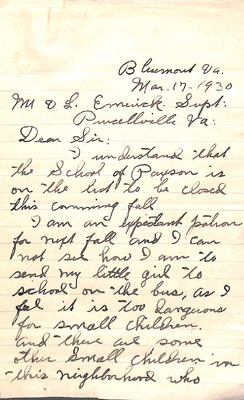 Bluemont Va.
Mar. 17 - 1930
Mr O. L. Emerick. Supt:
Purcellville Va:
Dear Sir:
I understand that
the School of Paxson is
on the list to be closed
this comming fall
I am an expectant patron
for next fall and I can
not see how I am to
send my little girl to
school on the bus, as I
feel it is too dangerous
for small children.
and there are some
other small children in
this neighborhood who